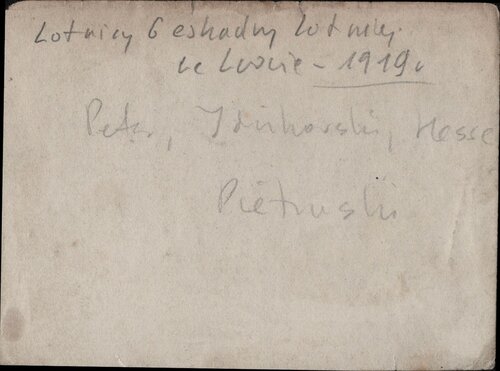 Lotnicy 6 eskadry lotniczej
we Lwowie - 1919 r
Peter, Idzikowski, Hesse
Pietruski